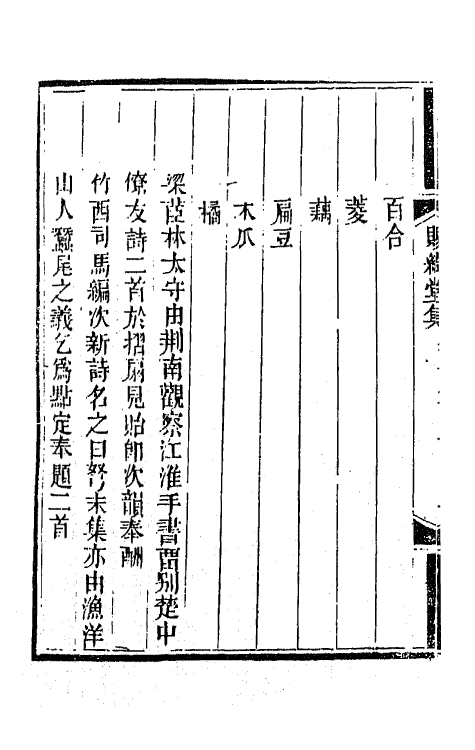 賜綺堂集
百合
菱
藕
扁豆
木瓜
橘
梁茝林太守由荆南觀察江淮手書畱别楚中
僚友詩二首於摺扇見貽卽次韻奉酬
竹西司馬編次新詩名之曰弩末集亦由漁洋
山人蠶尾之義乞爲點定奉題二首